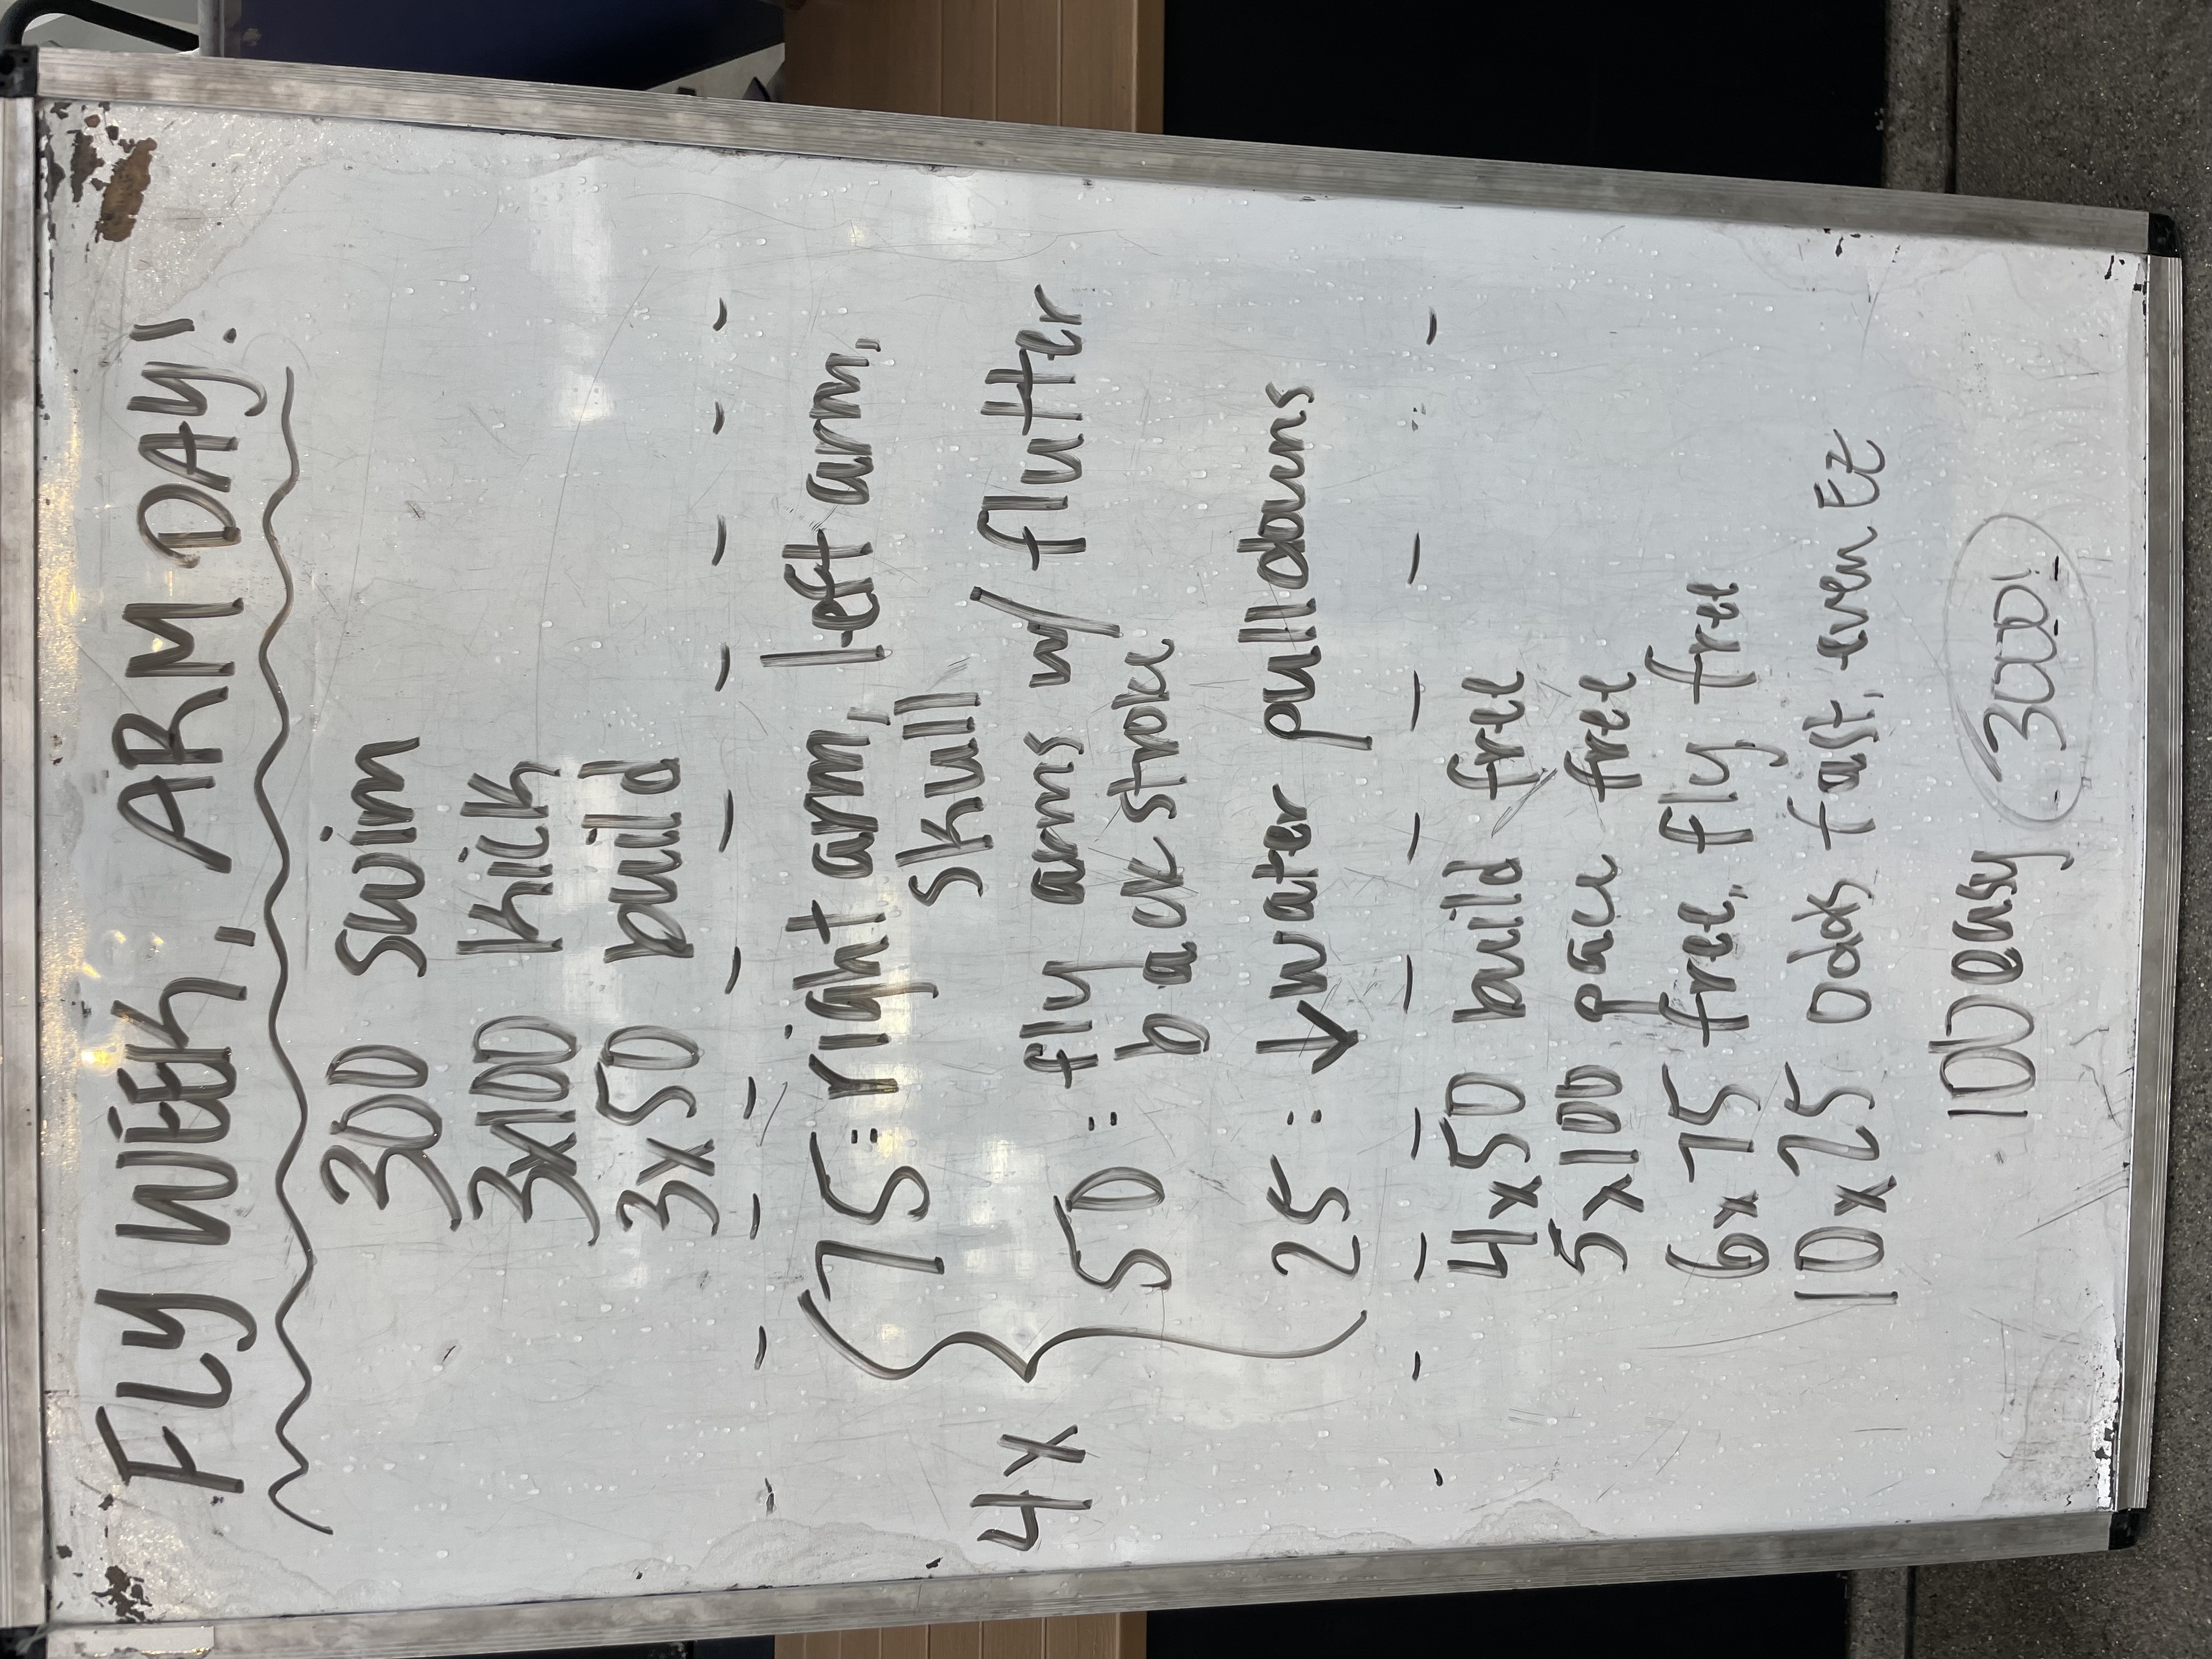 FLY WEEK, ARM DAY!
300 swim
3x100 kick
3x50 build
4x { 75 = right arm, left arm,
skull
50 = fly arms w/ flutter
backstroke
25 = ↓water pulldowns
4x50 build free
5x100 pace free
6x75 free, fly free
10x25 odds fast, even Ez
100 easy 3000!